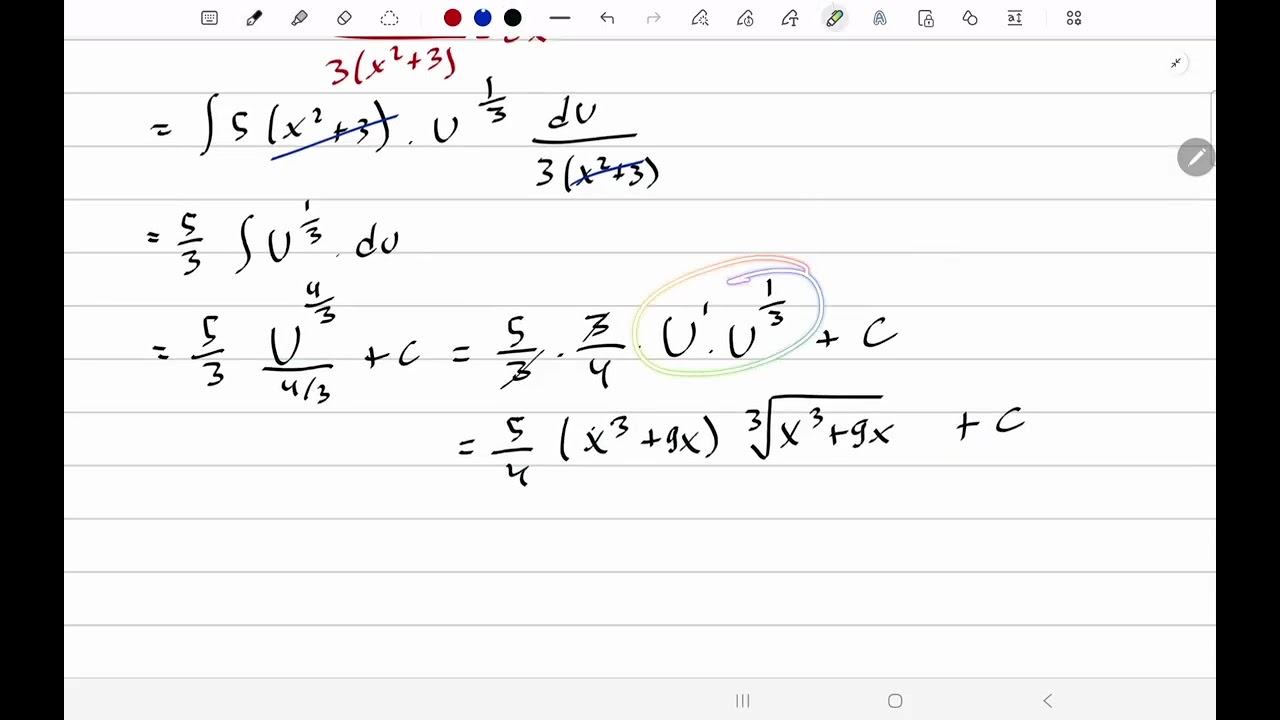 3(x²+3) = dx
= ∫ 5 (x²+3) . U^(1/3) du/(3(x²+3))
= 5/3 ∫ U^(1/3) . du
= 5/3 U^(4/3)/(4/3) + C = 5/3 . 3/4 . U¹ . U^(1/3) + C
= 5/4 (x³+9x) ∛(x³+9x) + C